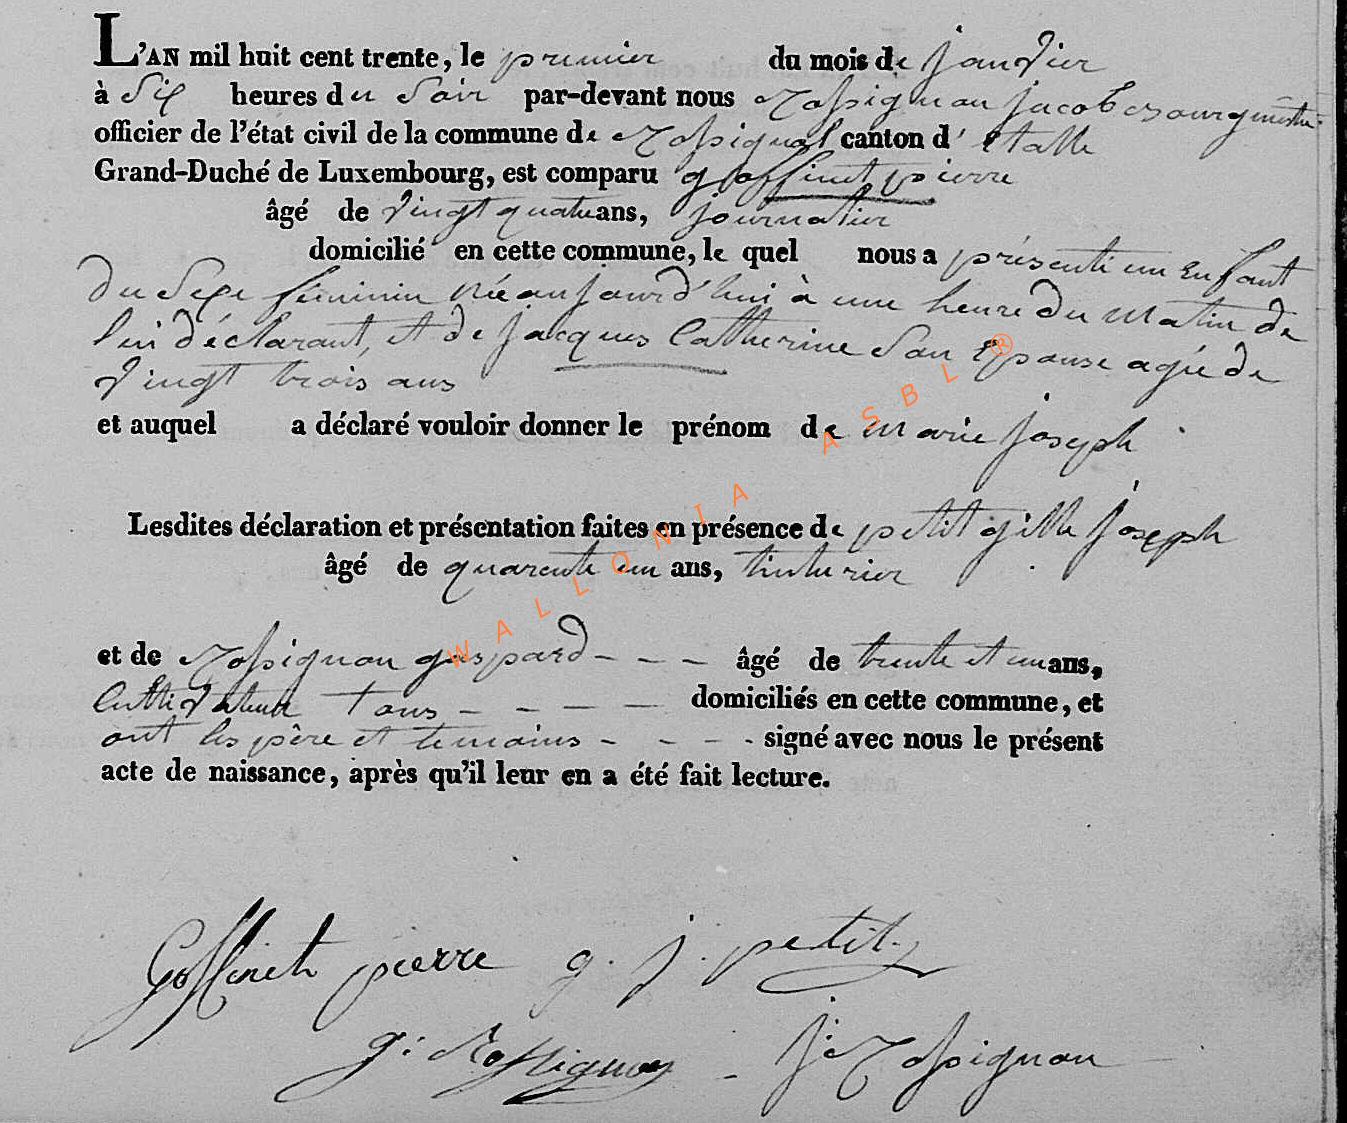 L'AN mil huit cent trente, le premier du mois de janvier
à Six heures du Soir par-devant nous Rossignon jacob bourguemestre
officier de l'état civil de la commune de Rossignol canton d' étalle
Grand-Duché de Luxembourg, est comparu goffinet pierre
âgé de vingt quatre ans, journalier
domicilié en cette commune, le quel nous a présenté un Enfant
du Sexe féminin née aujourd'hui à une heure du matin de
lui déclarant, et de jacques Catherine Son Epouse agée de
vingt trois ans
et auquel a déclaré vouloir donner le prénom de marie joseph
Lesdites déclaration et présentation faites en présence de petit gille joseph
âgé de quarente un ans, tinturier
et de Rossignon gaspard - - - âgé de trente et un ans,
Cultivateur tous - - - - domiciliés en cette commune, et
ont les père et temoins - - - - signé avec nous le présent
acte de naissance, après qu'il leur en a été fait lecture.
WALLONIA ASBL ®
Goffinet pierre g. j. petit
g: Rossignon - j: Rossignon